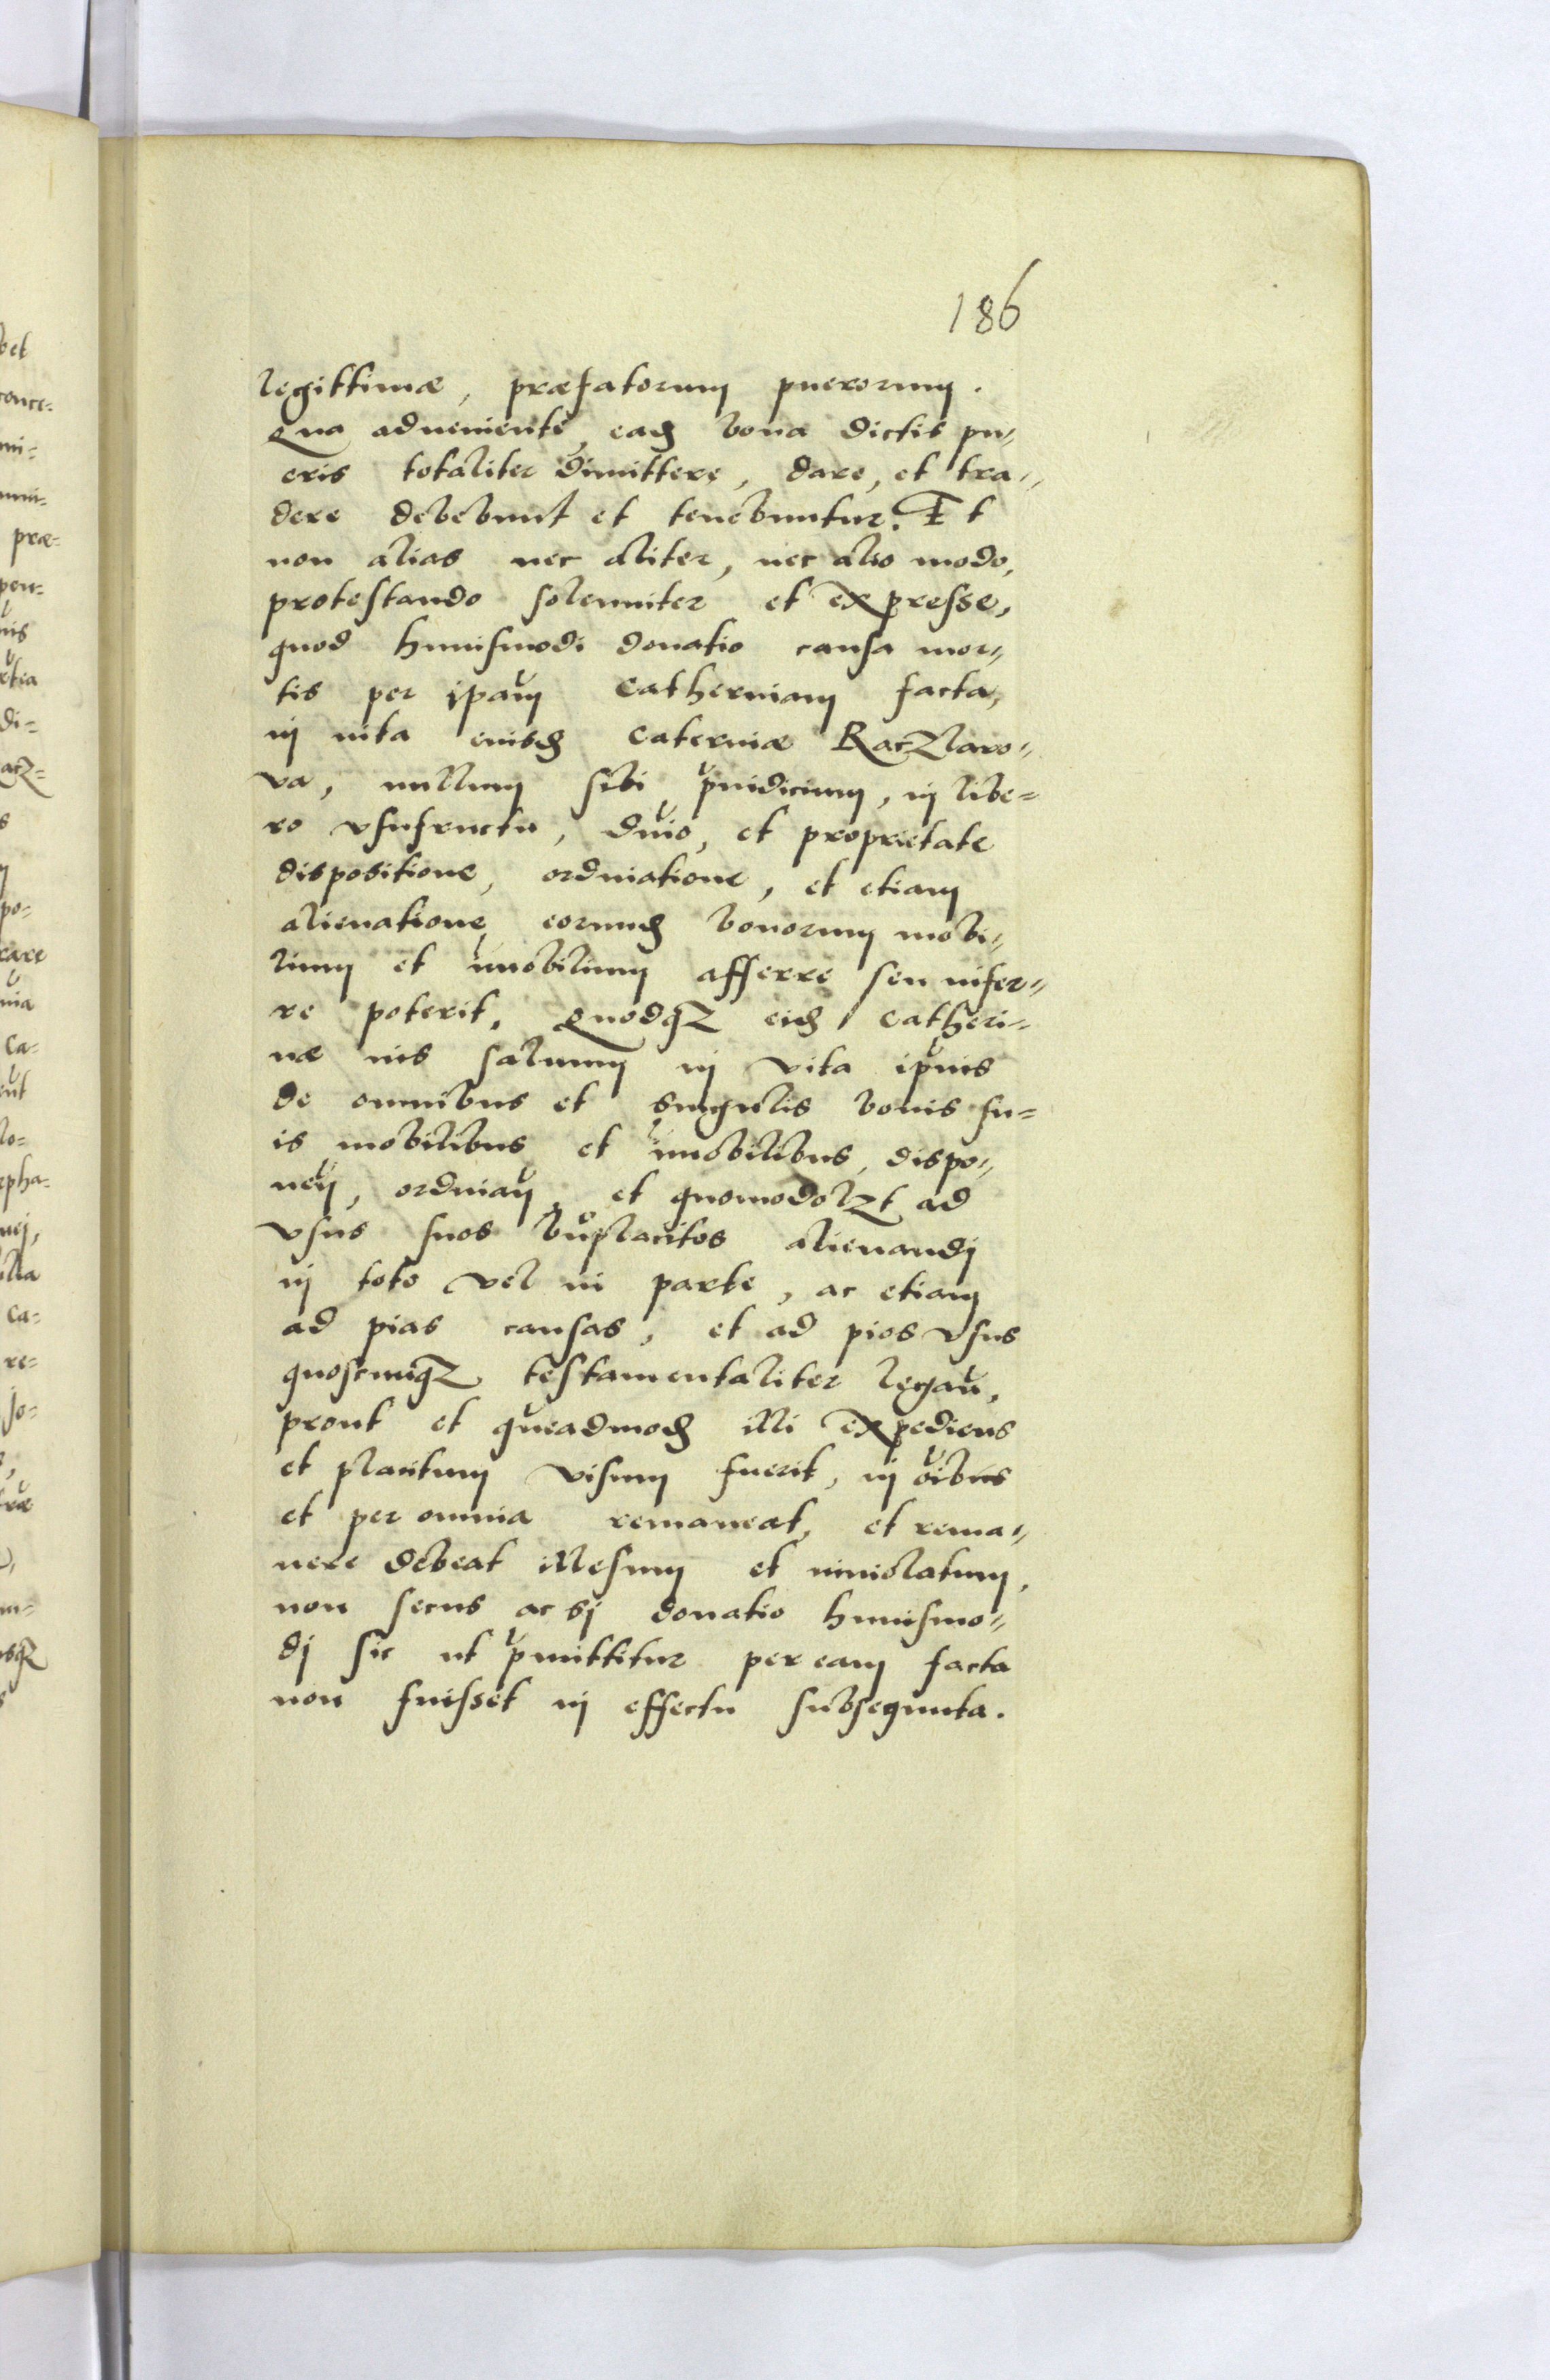 186
legittimæ, præfatorum puerorum.
Qua adueniente, ead bona dictis pu=
eris totaliter dimittere, dare, et tra=
dere debebunt et tenebuntur. Et
non alias nec aliter, nec alio modo,
protestando solenniter et expresse,
quod huiusmodi donatio causa mor=
tis per ipam Catherinam facta,
in uita eiusd Caterinæ Raczlawo=
va, nullum sibi pudicium, in libe=
ro vsufructu, dnio, et proprietate
dispositione, ordinatione, et etiam
alienatione, eorund bonorum mobi=
lium et imobilium afferre seu infer=
re poterit. Quodqz eid Catheri=
næ ius saluum in vita ipius
de omnibus et singulis bonis su=
is mobilibus et imobilibus, dispo=
nen, ordinan, et quomodolzt ad
vsus suos bnplacitos alienandi
in toto vel in parte, ac etiam
ad pias causas, et ad pios vsus
quoscunqz testamentaliter legan,
prout et queadmod illi expediens
et placitum visum fuerit, in oibus
et per omnia remaneat, et rema=
nere debeat illesum et inuiolatum,
non secus ac si donatio huiusmo=
di sic ut pmittitur per eam facta
non fuisset in effectu subsequuta.